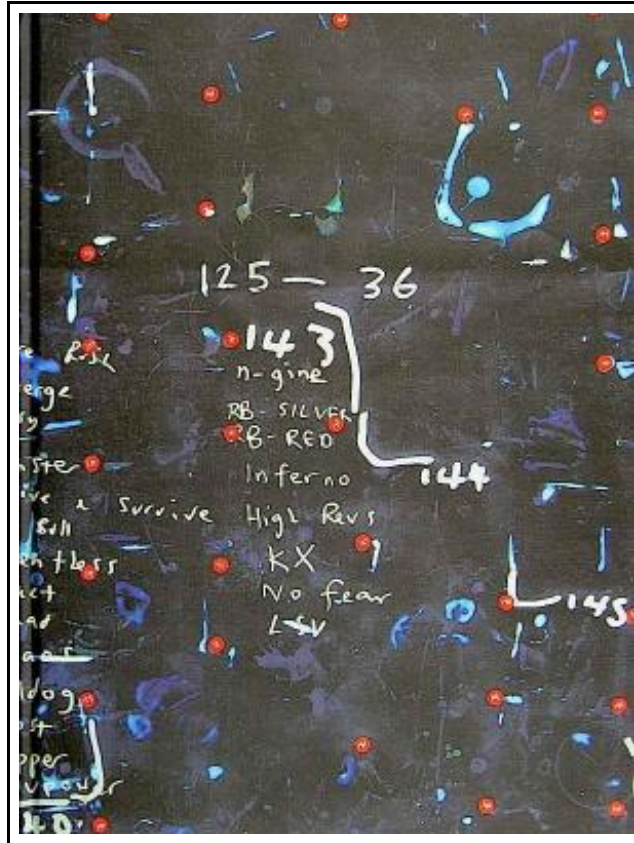 125 — 36
143
n-gine
RB-SILVER
RB-RED
Inferno
High Revs
KX
No fear
LSV
144
145
Risk
erge
ster
ive & Survive
Bull
entless
act
ad
aos
dog
st
pper
power
40